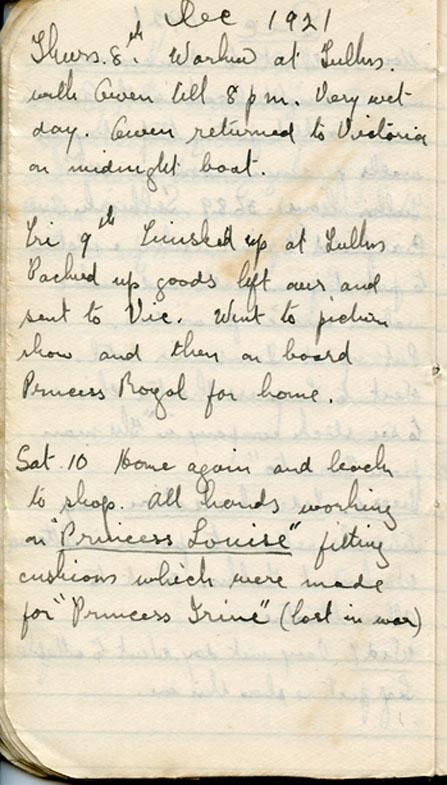 Dec 1921
Thurs. 8th. Worked at Tullus.
with Owen till 8 pm. Very wet
day. Owen returned to Victoria
on midnight boat.
Fri 9th Finished up at Tullus
Packed up goods left over and
sent to Vic. Went to picture
show and then on board
Princess Royal for home.
Sat. 10 Home again and back
to shop. All hands working
on "Princess Louise" fitting
cushions which were made
for "Princess Irine" (lost in war)